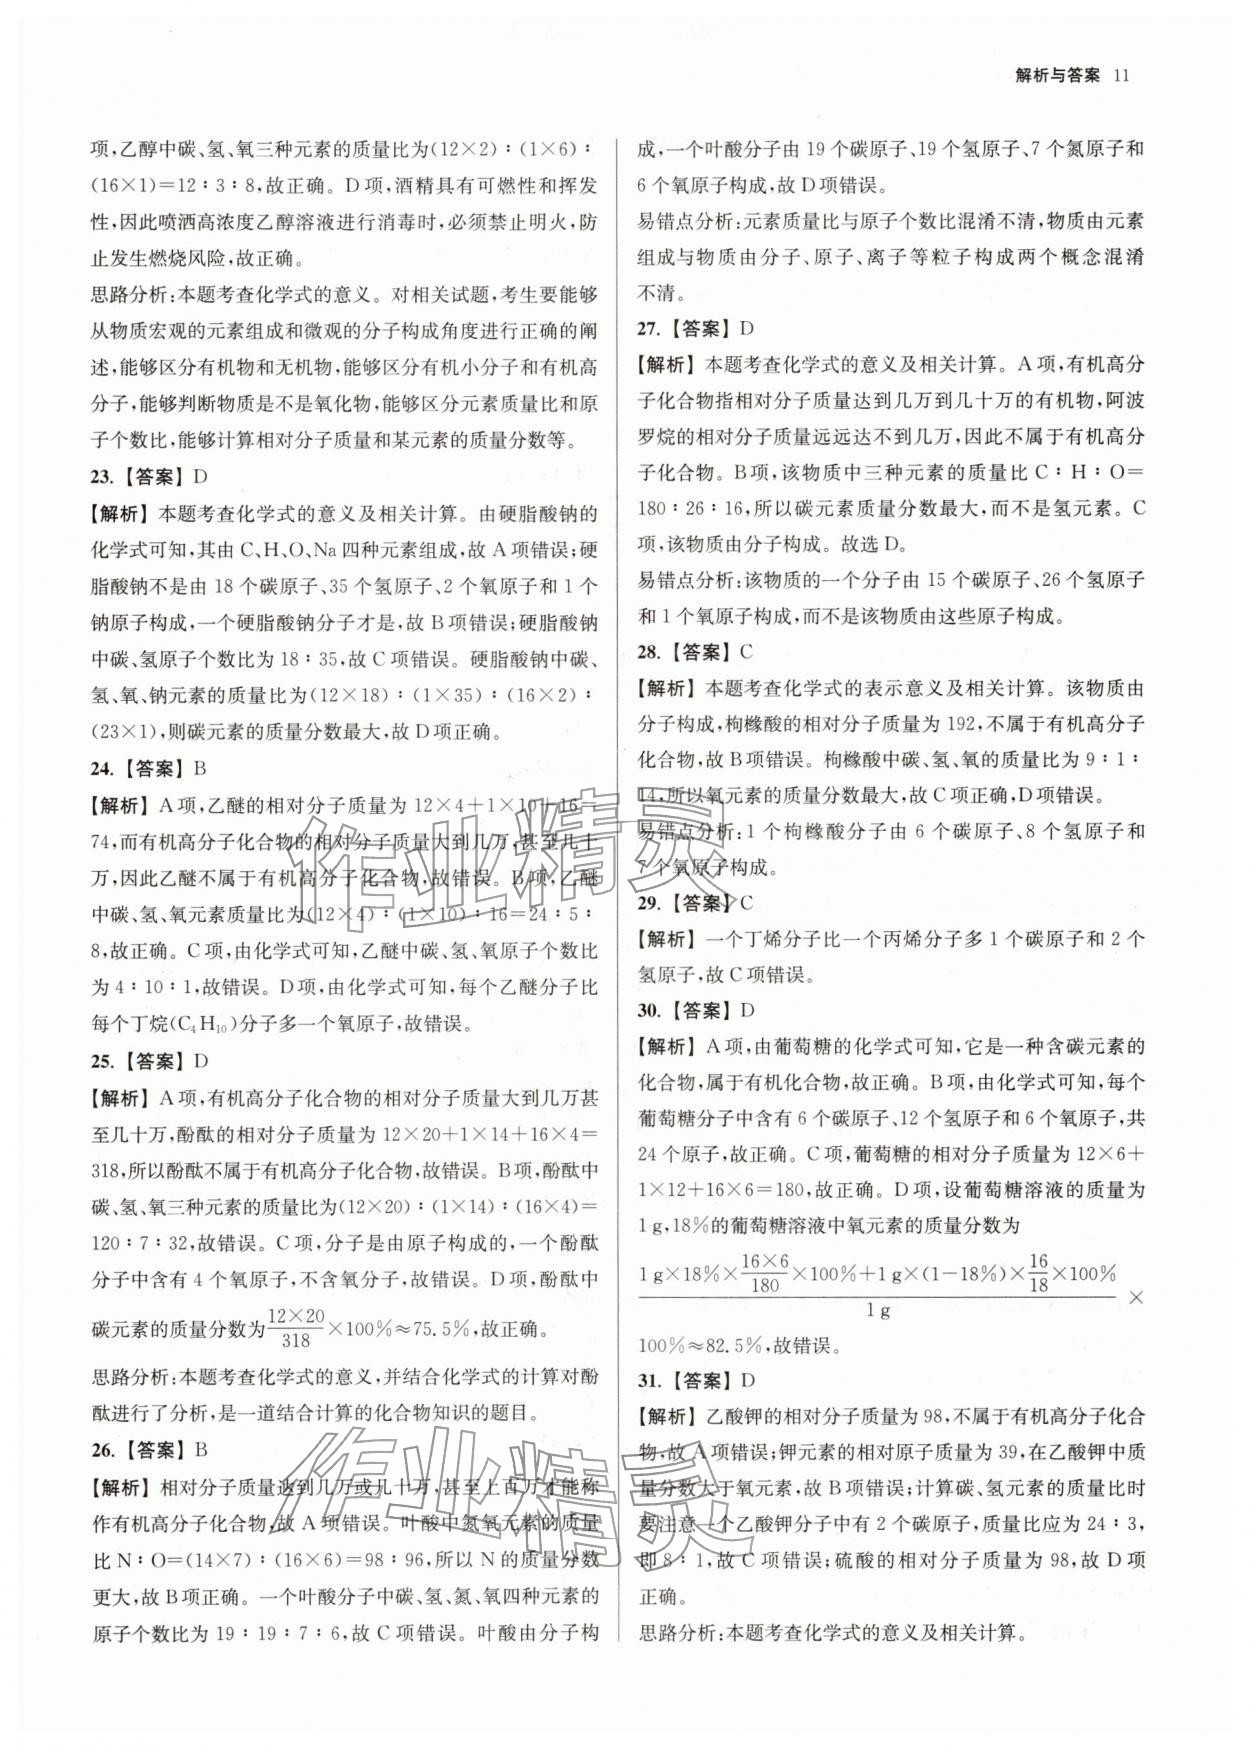 解析与答案 11
项,乙醇中碳、氢、氧三种元素的质量比为(12×2)∶(1×6)∶
(16×1)=12∶3∶8,故正确。D项,酒精具有可燃性和挥发
性,因此喷洒高浓度乙醇溶液进行消毒时,必须禁止明火,防
止发生燃烧风险,故正确。
思路分析:本题考查化学式的意义。对相关试题,考生要能够
从物质宏观的元素组成和微观的分子构成角度进行正确的阐
述,能够区分有机物和无机物,能够区分有机小分子和有机高
分子,能够判断物质是不是氧化物,能够区分元素质量比和原
子个数比,能够计算相对分子质量和某元素的质量分数等。
23.【答案】D
【解析】本题考查化学式的意义及相关计算。由硬脂酸钠的
化学式可知,其由C、H、O、Na四种元素组成,故A项错误;硬
脂酸钠不是由18个碳原子、35个氢原子、2个氧原子和1个
钠原子构成,一个硬脂酸钠分子才是,故B项错误;硬脂酸钠
中碳、氢原子个数比为18∶35,故C项错误。硬脂酸钠中碳、
氢、氧、钠元素的质量比为(12×18)∶(1×35)∶(16×2)∶
(23×1),则碳元素的质量分数最大,故D项正确。
24.【答案】B
【解析】A项,乙醚的相对分子质量为12×4+1×10+16=
74,而有机高分子化合物的相对分子质量大到几万,甚至几十
万,因此乙醚不属于有机高分子化合物,故错误。B项,乙醚
中碳、氢、氧元素质量比为(12×4)∶(1×10)∶16=24∶5∶
8,故正确。C项,由化学式可知,乙醚中碳、氢、氧原子个数比
为4∶10∶1,故错误。D项,由化学式可知,每个乙醚分子比
每个丁烷(C₄H₁₀)分子多一个氧原子,故错误。
25.【答案】D
【解析】A项,有机高分子化合物的相对分子质量大到几万甚
至几十万,酚酞的相对分子质量为12×20+1×14+16×4=
318,所以酚酞不属于有机高分子化合物,故错误。B项,酚酞中
碳、氢、氧三种元素的质量比为(12×20)∶(1×14)∶(16×4)=
120∶7∶32,故错误。C项,分子是由原子构成的,一个酚酞
分子中含有4个氧原子,不含氧分子,故错误。D项,酚酞中
碳元素的质量分数为12×20/318×100%≈75.5%,故正确。
思路分析:本题考查化学式的意义,并结合化学式的计算对酚
酞进行了分析,是一道结合计算的化合物知识的题目。
26.【答案】B
【解析】相对分子质量达到几万或几十万,甚至上百万才能称
作有机高分子化合物,故A项错误。叶酸中氮氧元素的质量
比N∶O=(14×7)∶(16×6)=98∶96,所以N的质量分数
更大,故B项正确。一个叶酸分子中碳、氢、氮、氧四种元素的
原子个数比为19∶19∶7∶6,故C项错误。叶酸由分子构
成,一个叶酸分子由19个碳原子、19个氢原子、7个氮原子和
6个氧原子构成,故D项错误。
易错点分析:元素质量比与原子个数比混淆不清,物质由元素
组成与物质由分子、原子、离子等粒子构成两个概念混淆
不清。
27.【答案】D
【解析】本题考查化学式的意义及相关计算。A项,有机高分
子化合物指相对分子质量达到几万到几十万的有机物,阿波
罗烷的相对分子质量远远达不到几万,因此不属于有机高分
子化合物。B项,该物质中三种元素的质量比C∶H∶O=
180∶26∶16,所以碳元素质量分数最大,而不是氢元素。C
项,该物质由分子构成。故选D。
易错点分析:该物质的一个分子由15个碳原子、26个氢原子
和1个氧原子构成,而不是该物质由这些原子构成。
28.【答案】C
【解析】本题考查化学式的表示意义及相关计算。该物质由
分子构成,枸橼酸的相对分子质量为192,不属于有机高分子
化合物,故B项错误。枸橼酸中碳、氢、氧的质量比为9∶1∶
14,所以氧元素的质量分数最大,故C项正确,D项错误。
易错点分析:1个枸橼酸分子由6个碳原子、8个氢原子和
7个氧原子构成。
29.【答案】C
【解析】一个丁烯分子比一个丙烯分子多1个碳原子和2个
氢原子,故C项错误。
30.【答案】D
【解析】A项,由葡萄糖的化学式可知,它是一种含碳元素的
化合物,属于有机化合物,故正确。B项,由化学式可知,每个
葡萄糖分子中含有6个碳原子、12个氢原子和6个氧原子,共
24个原子,故正确。C项,葡萄糖的相对分子质量为12×6+
1×12+16×6=180,故正确。D项,设葡萄糖溶液的质量为
1g,18%的葡萄糖溶液中氧元素的质量分数为
(1g×18%×16×6/180×100%+1g×(1-18%)×16/18×100%)/1g×
100%≈82.5%,故错误。
31.【答案】D
【解析】乙酸钾的相对分子质量为98,不属于有机高分子化合
物,故A项错误;钾元素的相对原子质量为39,在乙酸钾中质
量分数大于氧元素,故B项错误;计算碳、氢元素的质量比时
要注意一个乙酸钾分子中有2个碳原子,质量比应为24∶3,
即8∶1,故C项错误;硫酸的相对分子质量为98,故D项
正确。
思路分析:本题考查化学式的意义及相关计算。
作业精灵
作业精灵